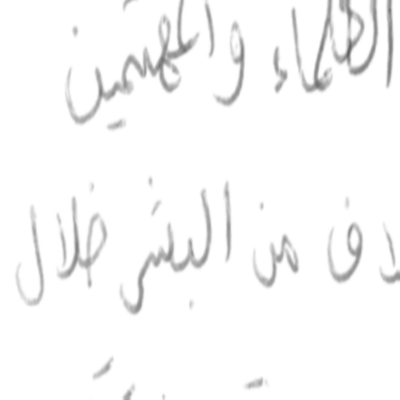 العلماء والمهتمين
من البشر خلال